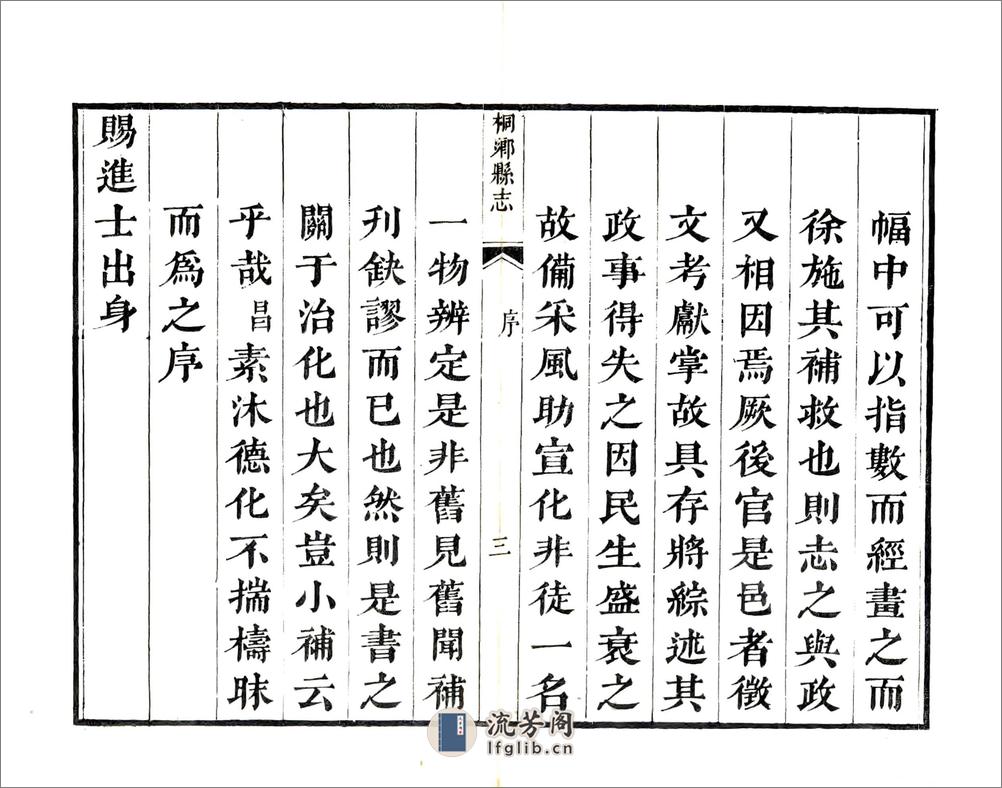 幅中可以指數而經畫之而
徐施其補救也則志之與政
又相因焉厥後官是邑者徵
文考獻掌故具存將綜述其
政事得失之因民生盛衰之
故備采風助宣化非徒一名
桐鄉縣志
序
三
一物辨定是非舊見舊聞補
刋缺謬而已也然則是書之
關于治化也大矣豈小補云
乎哉昌素沐德化不揣檮昧
而爲之序
賜進士出身
流芳阁
lfglib.cn